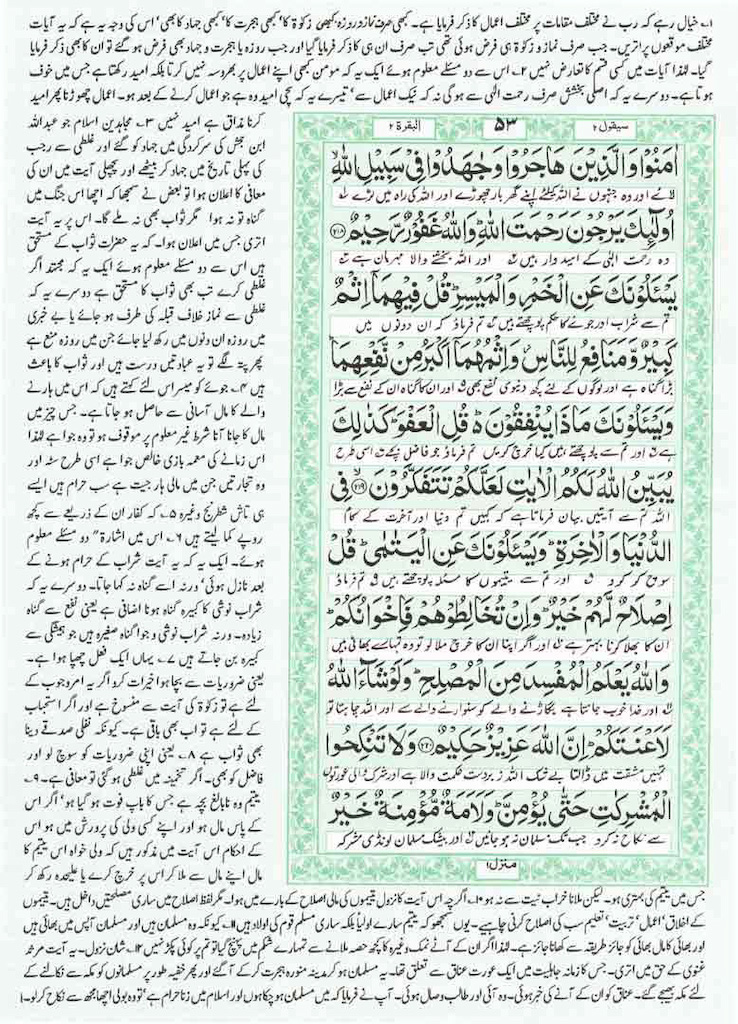 ۱۔ خیال رہے کہ رب نے مختلف مقامات پر مختلف اعمال کا ذکر فرمایا ہے۔ کبھی صرف نماز و روزہ کبھی زکوٰۃ کا' کبھی ہجرت کا' کبھی جہاد کا بھی' اس کی وجہ یہ ہے کہ یہ آیات
مختلف موقعوں پر اتریں۔ جب صرف نماز و زکوٰۃ ہی فرض ہوئی تھی تب صرف ان ہی کا ذکر فرمایا گیا اور جب روزہ یا ہجرت و جہاد بھی فرض ہو گئے تو ان کا بھی ذکر فرمایا
گیا۔ لہٰذا آیات میں کسی قسم کا تعارض نہیں ۲۔ اس سے دو مسئلے معلوم ہوئے ایک یہ کہ مومن کبھی اپنے اعمال پر بھروسہ نہیں کرتا بلکہ امید رکھتا ہے جس میں خوف
ہوتا ہے۔ دوسرے یہ کہ اصلی بخشش صرف رحمت الٰہی سے ہوگی نہ کہ نیک اعمال سے' تیسرے یہ کہ سچی امید وہ ہے جو اعمال کرنے کے بعد ہو۔ اعمال چھوڑنا پھر امید
سیقول ۲
۵۳
البقرۃ ۲
اٰمَنُوْا وَالَّذِیْنَ هَاجَرُوْا وَجٰهَدُوْا فِیْ سَبِیْلِ اللّٰهِ
لائے اور وہ جنہوں نے اللہ کیلئے اپنے گھر بار چھوڑے اور اللہ کی راہ میں لڑے
اُولٰٓئِكَ یَرْجُوْنَ رَحْمَتَ اللّٰهِ وَاللّٰهُ غَفُوْرٌ رَّحِیْمٌ ﴿۲۱۸﴾
وہ رحمت الٰہی کے امیدوار ہیں اور اللہ بخشنے والا مہربان ہے
یَسْـَٔلُوْنَكَ عَنِ الْخَمْرِ وَالْمَیْسِرِ قُلْ فِیْهِمَاۤ اِثْمٌ
تم سے شراب اور جوئے کا حکم پوچھتے ہیں تم فرماؤ کہ ان دونوں میں
كَبِیْرٌ وَّمَنَافِعُ لِلنَّاسِ وَاِثْمُهُمَاۤ اَكْبَرُ مِنْ نَّفْعِهِمَا
بڑا گناہ ہے اور لوگوں کے لئے کچھ دنیوی نفع بھی اور ان کا گناہ ان کے نفع سے بڑا
وَیَسْـَٔلُوْنَكَ مَاذَا یُنْفِقُوْنَ قُلِ الْعَفْوَ كَذٰلِكَ
ہے اور تم سے پوچھتے ہیں کیا خرچ کریں تم فرماؤ جو فاضل بچے اسی طرح
یُبَیِّنُ اللّٰهُ لَكُمُ الْاٰیٰتِ لَعَلَّكُمْ تَتَفَكَّرُوْنَ ﴿۲۱۹﴾ فِی
اللہ تم سے آیتیں بیان فرماتا ہے کہ کہیں تم دنیا اور آخرت کے کام
الدُّنْیَا وَالْاٰخِرَةِ وَیَسْـَٔلُوْنَكَ عَنِ الْیَتٰمٰی قُلْ
سوچ کر کرو اور تم سے یتیموں کا مسئلہ پوچھتے ہیں تم فرماؤ
اِصْلَاحٌ لَّهُمْ خَیْرٌ وَاِنْ تُخَالِطُوْهُمْ فَاِخْوَانُكُمْ
ان کا بھلا کرنا بہتر ہے اور اگر اپنا ان کا خرچ ملا لو تو وہ تمہارے بھائی ہیں
وَاللّٰهُ یَعْلَمُ الْمُفْسِدَ مِنَ الْمُصْلِحِ وَلَوْ شَآءَ اللّٰهُ
اور خدا خوب جانتا ہے بگاڑنے والے کو سنوارنے والے سے اور اللہ چاہتا تو
لَاَعْنَتَكُمْ اِنَّ اللّٰهَ عَزِیْزٌ حَكِیْمٌ ﴿۲۲۰﴾ وَلَا تَنْكِحُوا
تمہیں مشقت میں ڈالتا بے شک اللہ زبردست حکمت والا ہے اور شرک والی عورتوں
الْمُشْرِكٰتِ حَتّٰی یُؤْمِنَّ وَلَاَمَةٌ مُّؤْمِنَةٌ خَیْرٌ
سے نکاح نہ کرو جب تک مسلمان نہ ہو جائیں اور بیشک مسلمان لونڈی مشرکہ
منزل ۱
کرنا مذاق ہے امید نہیں ۳۔ مجاہدین اسلام جو عبداللہ
ابن جحش کی سرکردگی میں جہاد کو گئے اور غلطی سے رجب
کی پہلی تاریخ میں جہاد کر بیٹھے اور پچھلی آیت میں ان کی
معافی کا اعلان ہوا تو بعض نے سمجھا کہ اچھا اس جنگ میں
گناہ تو نہ ہوا مگر ثواب بھی نہ ملے گا۔ اس پر یہ آیت
اتری جس میں اعلان ہوا۔ کہ یہ حضرات ثواب کے مستحق
ہیں اس سے دو مسئلے معلوم ہوئے ایک یہ کہ مجتہد اگر
غلطی کرے تب بھی ثواب کا مستحق ہے دوسرے یہ کہ
غلطی سے نماز خلاف قبلہ کی طرف ہو جائے یا بے خبری
میں روزہ ان دنوں میں رکھ لیا جائے جن میں روزہ منع ہے
پھر پتہ لگے تو یہ عبادتیں درست ہیں اور ثواب کا باعث
ہیں ۴۔ جوئے کو میسر اس لئے کہتے ہیں کہ اس میں ہارنے
والے کا مال آسانی سے حاصل ہو جاتا ہے۔ جس چیز میں
مال کا جانا آنا شرط غیر معلوم پر موقوف ہو تو وہ جوا ہے لہٰذا
اس زمانے کی معمہ بازی خالص جوا ہے اسی طرح سٹہ اور
وہ تجارتیں جن میں مالی ہار جیت ہے سب حرام ہیں ایسے
ہی تاش شطرنج وغیرہ ۵۔ کہ کفار ان کے ذریعے سے کچھ
روپے کما لیتے ہیں ۶۔ اس میں اشارۃً دو مسئلے معلوم
ہوئے۔ ایک یہ کہ یہ آیت شراب کے حرام ہونے کے
بعد نازل ہوئی' ورنہ اسے گناہ نہ کہا جاتا۔ دوسرے یہ کہ
شراب نوشی کا کبیرہ گناہ ہونا اضافی ہے یعنی نفع سے گناہ
زیادہ۔ ورنہ شراب نوشی و جوا گناہ صغیرہ ہیں جو ہمیشگی سے
کبیرہ بن جاتے ہیں ۷۔ یہاں ایک فعل چھپا ہوا ہے۔
یعنی ضروریات سے بچا ہوا خیرات کرو اگر یہ امر وجوب کے
لئے ہے تو زکوٰۃ کی آیت سے منسوخ ہے اور اگر استحباب
کے لئے ہے تو اب بھی باقی ہے۔ کیونکہ نفلی صدقے دینا
بھی ثواب ہے ۸۔ یعنی اپنی ضروریات کو سوچ لو اور
فاضل کو بھی۔ اگر تخمینہ میں غلطی ہو گئی تو معافی ہے۔ ۹۔
یتیم وہ نابالغ بچہ ہے جس کا باپ فوت ہو گیا ہو' اگر اس
کے پاس مال ہو اور اپنے کسی ولی کی پرورش میں ہو اس
کے احکام اس آیت میں مذکور ہیں کہ ولی خواہ اس یتیم کا
مال اپنے مال سے ملا کر اس پر خرچ کرے یا علیحدہ رکھ کر
جس میں یتیم کی بہتری ہو۔ لیکن ملانا خراب نیت سے نہ ہو ۱۰۔ اگرچہ اس آیت کا نزول یتیموں کی مالی اصلاح کے بارے میں ہوا۔ مگر لفظ اصلاح میں ساری مصلحتیں داخل ہیں۔ یتیموں
کے اخلاق' اعمال' تربیت' تعلیم سب کی اصلاح کرنی چاہیے۔ یوں سمجھو کہ یتیم سارے اولیا بلکہ ساری مسلم قوم کی اولاد ہیں ۱۱۔ کیونکہ وہ مسلمان ہیں اور مسلمان آپس میں بھائی ہیں
اور بھائی کا مال بھائی کو جائز طریقہ سے کھانا جائز ہے۔ لہٰذا اگر ان کے آٹے نمک وغیرہ کا کچھ حصہ ملانے سے تمہارے شکم میں پہنچ گیا تو تم پر کوئی پکڑ نہیں ۱۲۔ شان نزول۔ یہ آیت مرثد
غنوی کے حق میں اتری۔ جس کا زمانہ جاہلیت میں ایک عورت عناق سے تعلق تھا۔ یہ مسلمان ہو کر مدینہ منورہ ہجرت کر کے آگئے اور پھر خفیہ طور پر مسلمانوں کو مکہ سے نکالنے کے
لئے مکہ بھیجے گئے۔ عناق کو ان کے آنے کی خبر ہوئی۔ وہ آئی اور طالب وصال ہوئی۔ آپ نے فرمایا کہ میں مسلمان ہو چکا ہوں اور اسلام میں زنا حرام ہے' تو وہ بولی اچھا مجھ سے نکاح کر لو۔